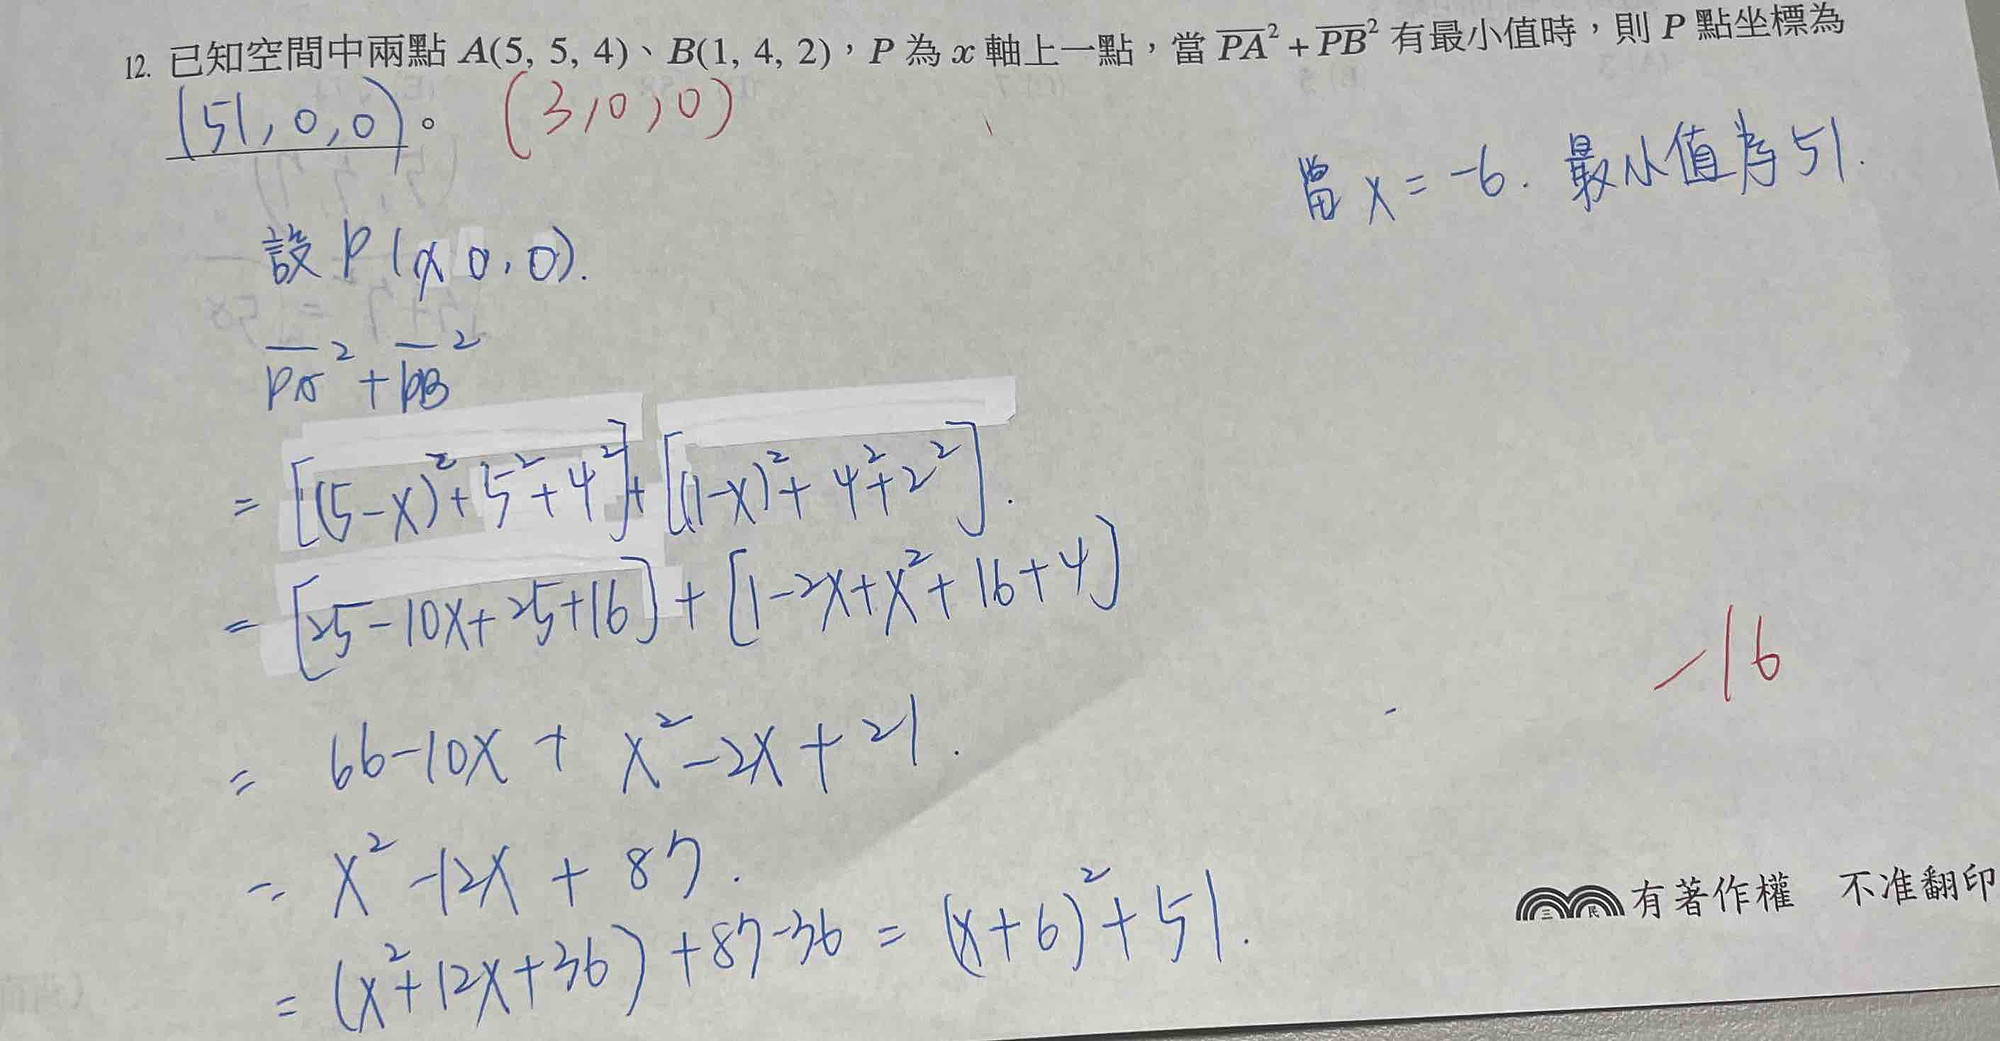 12. 已知空間中兩點 A(5, 5, 4)、B(1, 4, 2)，P 為 x 軸上一點，當 PA² + PB² 有最小值時，則 P 點坐標為
(51, 0, 0)。 (3, 0, 0)
當 x = -6. 最小值為 51.
設 P(x 0, 0).
PA² + PB²
= [(5-x)² + 5² + 4²] + [(1-x)² + 4² + 2²].
= [25 - 10x + 25 + 16] + [1 - 2x + x² + 16 + 4]
-16
= 66 - 10x + x² - 2x + 21.
= x² - 12x + 87.
= (x² + 12x + 36) + 87 - 36 = (x + 6)² + 51.
三 民 有著作權 不准翻印